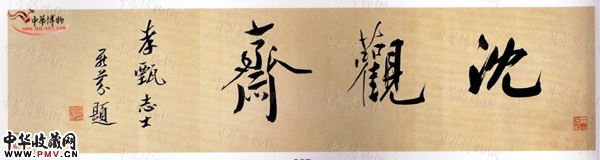 沈觀齋
孝甄志士
中华博物
www.GG-ART.com
中华收藏网
www.PMV.CN